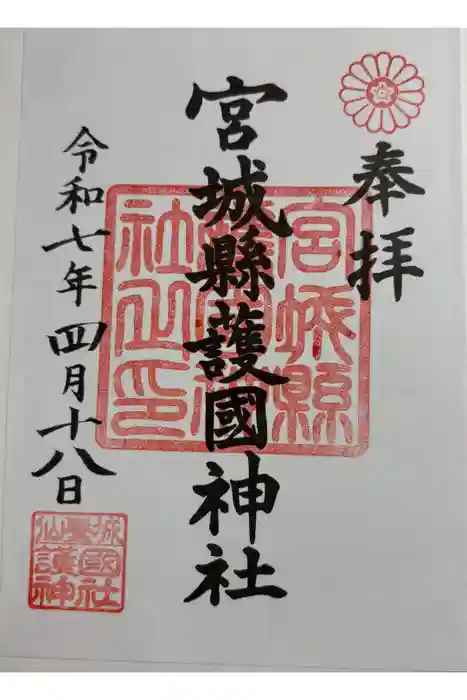 奉拝
宮城縣護國神社
令和七年四月十八日
宮城縣
社之印
仙臺城
護國
神社